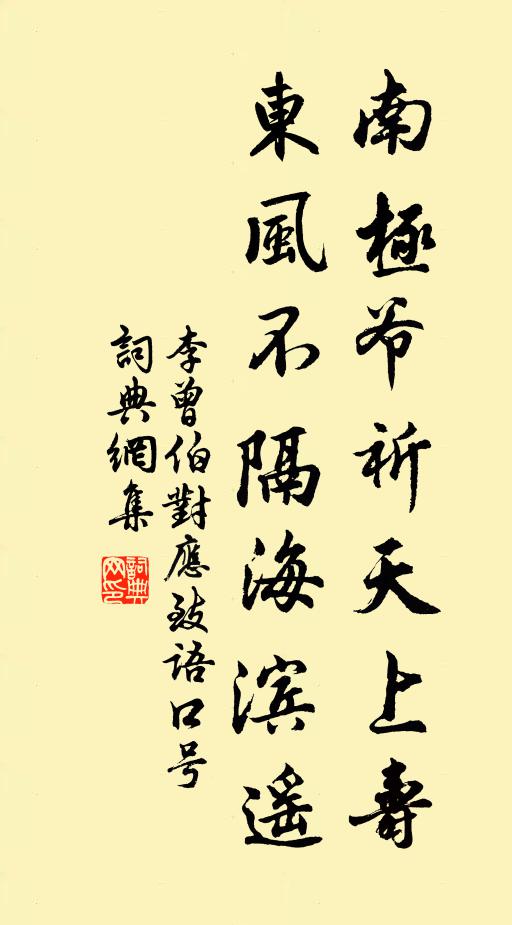 南極爷祈天上壽
東風不隔海滨遥
李曾伯對應致語口号
詞典網集
詞典
网印